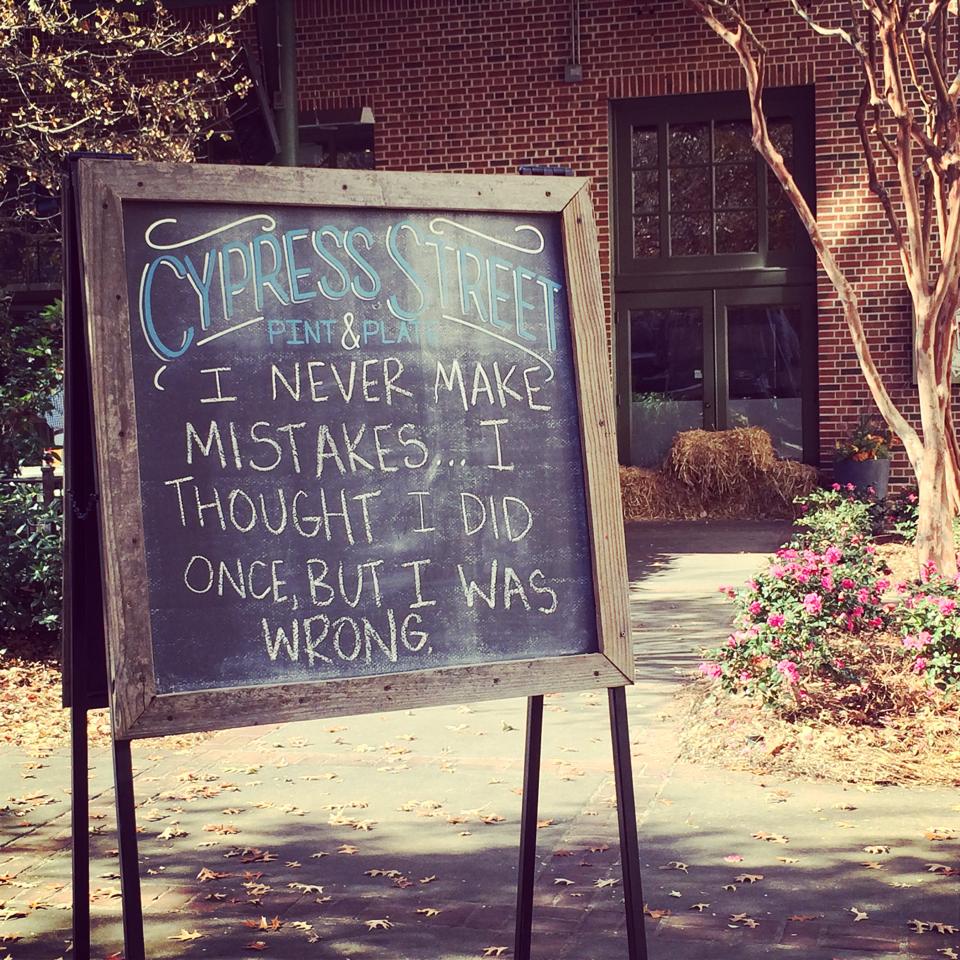 CYPRESS STREET
PINT & PLATE
I NEVER MAKE
MISTAKES... I
THOUGHT I DID
ONCE, BUT I WAS
WRONG.